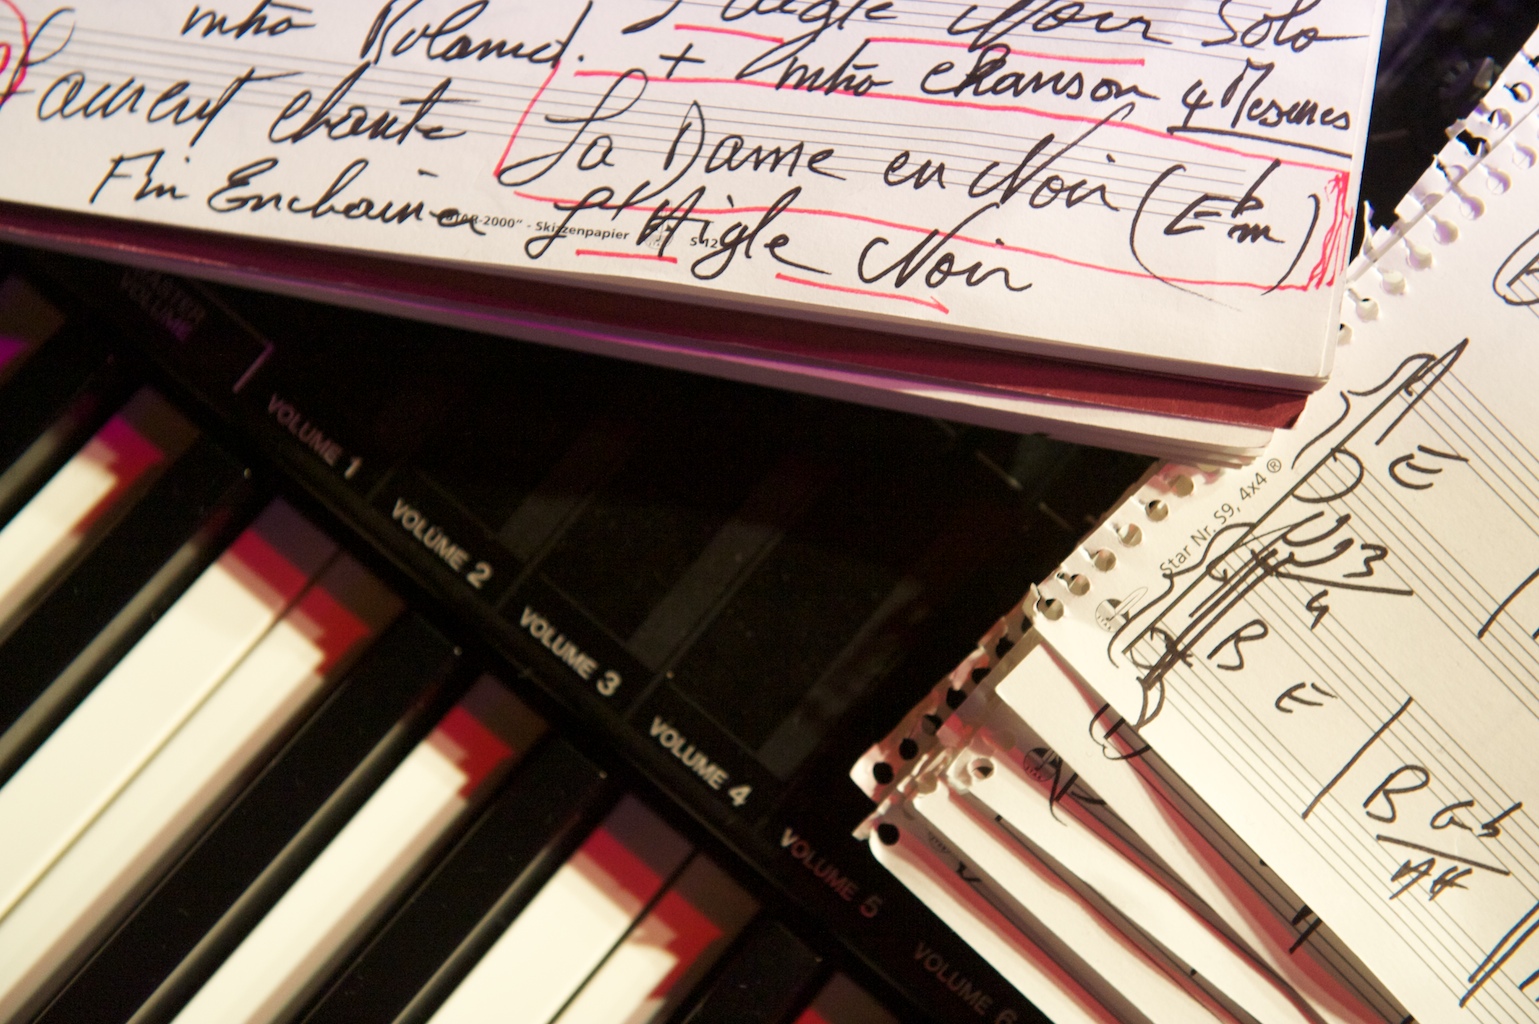 intro Roland. L'Aigle Noir Solo
+ intro chanson 4 Mesures
Laurent chante
La Dame en Noir (Ebm)
Fin Enchaine L'Aigle Noir
"STAR-2000" - Skizzenpapier S 12
MASTER
VOLUME
VOLUME 1
VOLUME 2
VOLUME 3
VOLUME 4
VOLUME 5
VOLUME 6
Star Nr. S9, 4x4 ®
E
3
4
B E
B Gb